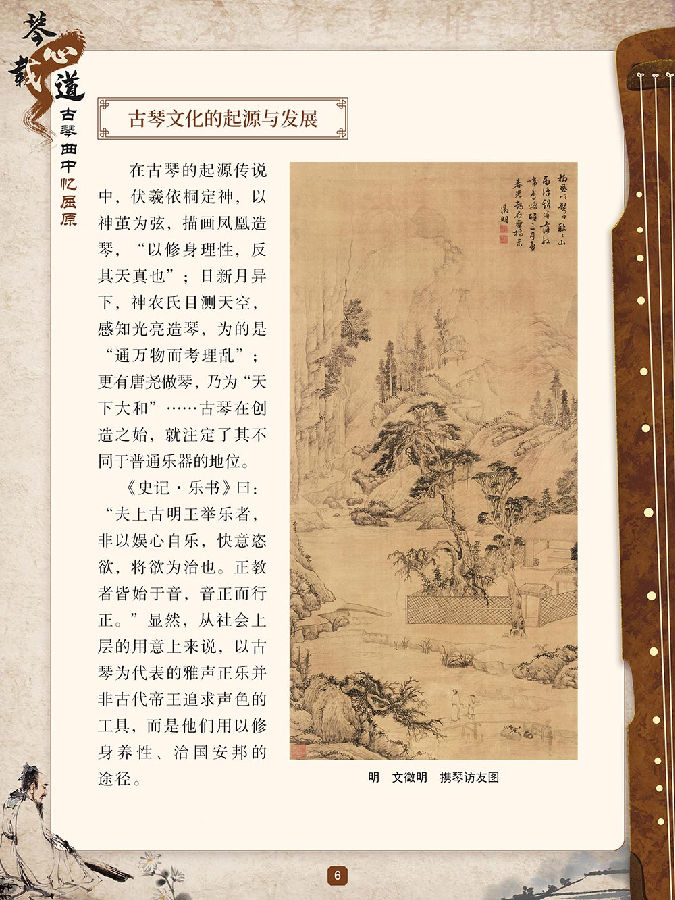 琴心
载道
古琴曲中忆屈原
古琴文化的起源与发展
在古琴的起源传说
中，伏羲依桐定神，以
神茧为弦，描画凤凰造
琴，“以修身理性，反
其天真也”；日新月异
下，神农氏目测天空，
感知光亮造琴，为的是
“通万物而考理乱”；
更有唐尧做琴，乃为“天
下大和”……古琴在创
造之始，就注定了其不
同于普通乐器的地位。
《史记·乐书》曰：
“夫上古明王举乐者，
非以娱心自乐，快意恣
欲，将欲为治也。正教
者皆始于音，音正而行
正。”显然，从社会上
层的用意上来说，以古
琴为代表的雅声正乐并
非古代帝王追求声色的
工具，而是他们用以修
身养性、治国安邦的
途径。
明 文徵明 携琴访友图
6